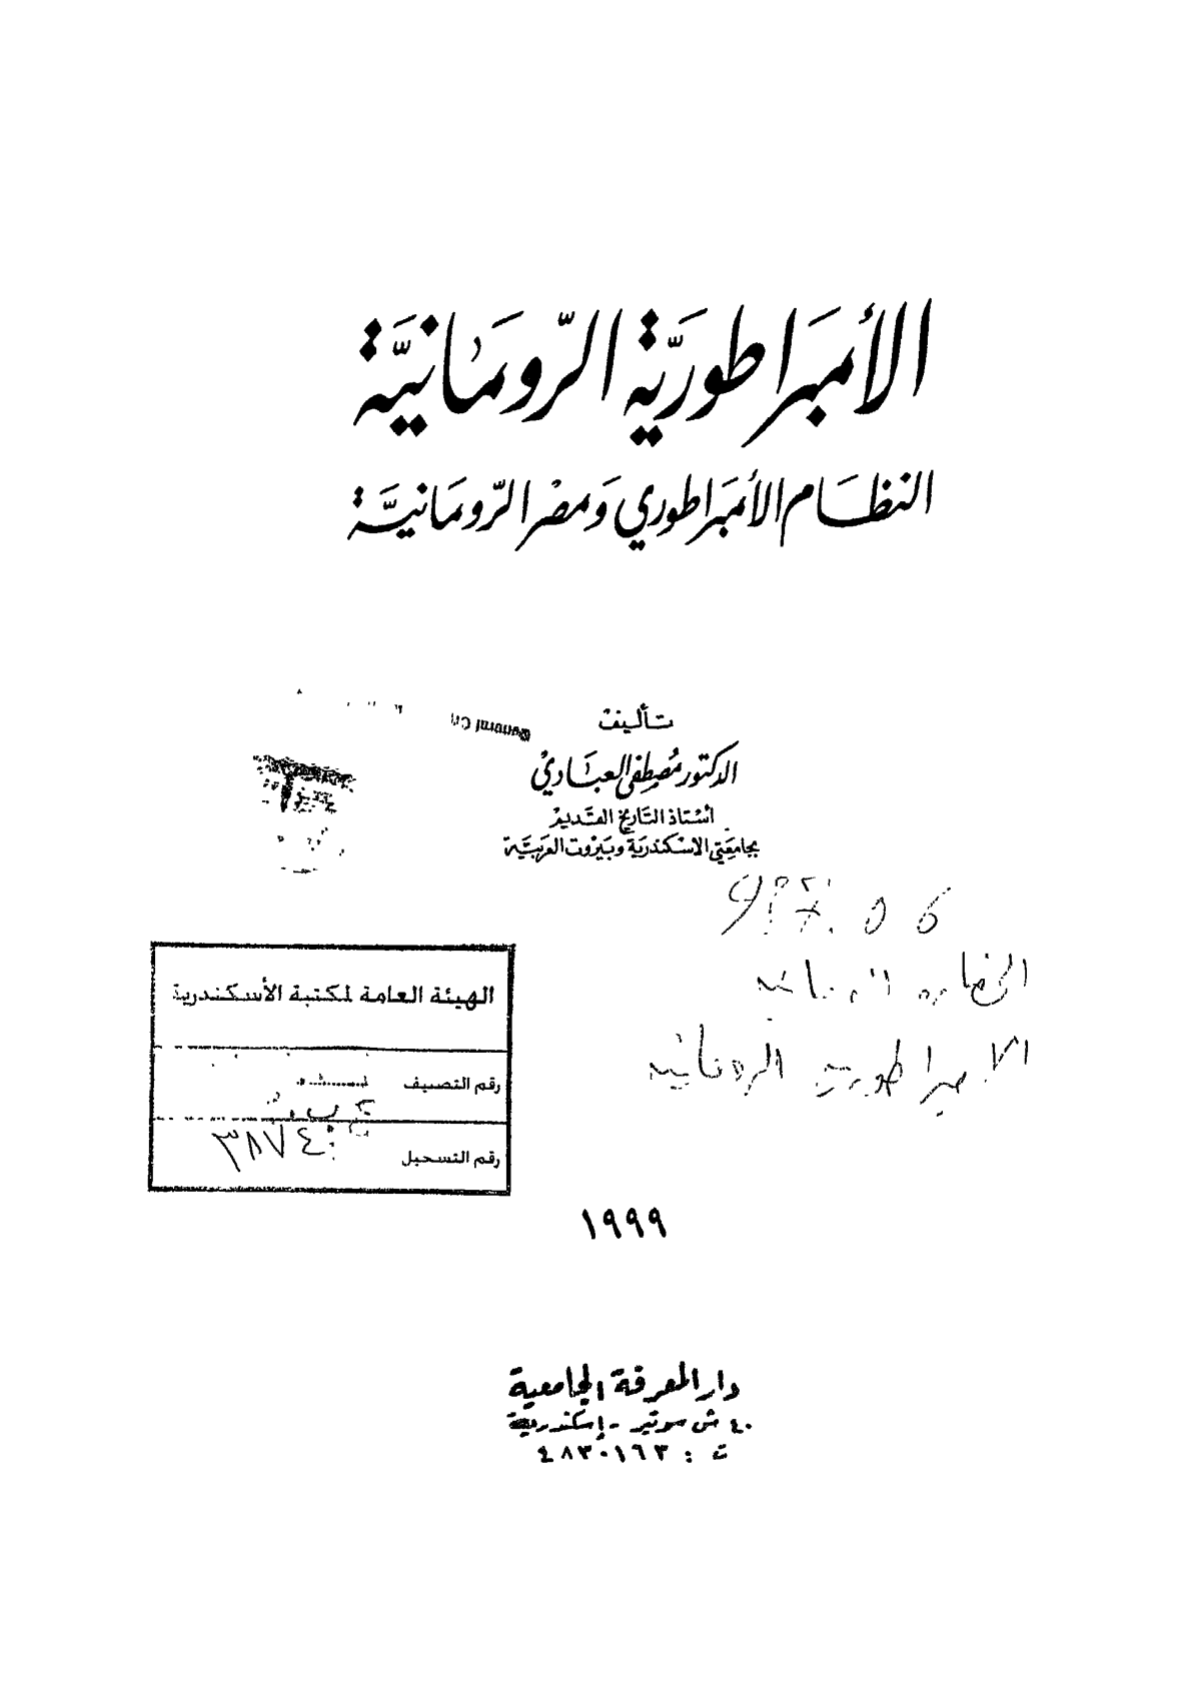 الأمبراطوريَّة الرّومَانيَّة
النظام الأمبراطوري وَمصْر الرّومَانيَّة
تأليفْ
الدكتور مُصطفى العبَاديْ
أسْتاذ التَاريخ القَديمْ
بجامعَتي الاسْكندَريَة وبَيْروت العَربيَّة
937.06
الحضارة الرومانية
الامبراطورية الرومانية
الهيئة العامة لمكتبة الأسكندرية
رقم التصنيف
رقم التسجيل ٣٨٧٤
١٩٩٩
دار المعرفة الجامعية
٤٠ ش سوتير - إسكندرية
ت : ٤٨٣٠١٦٣